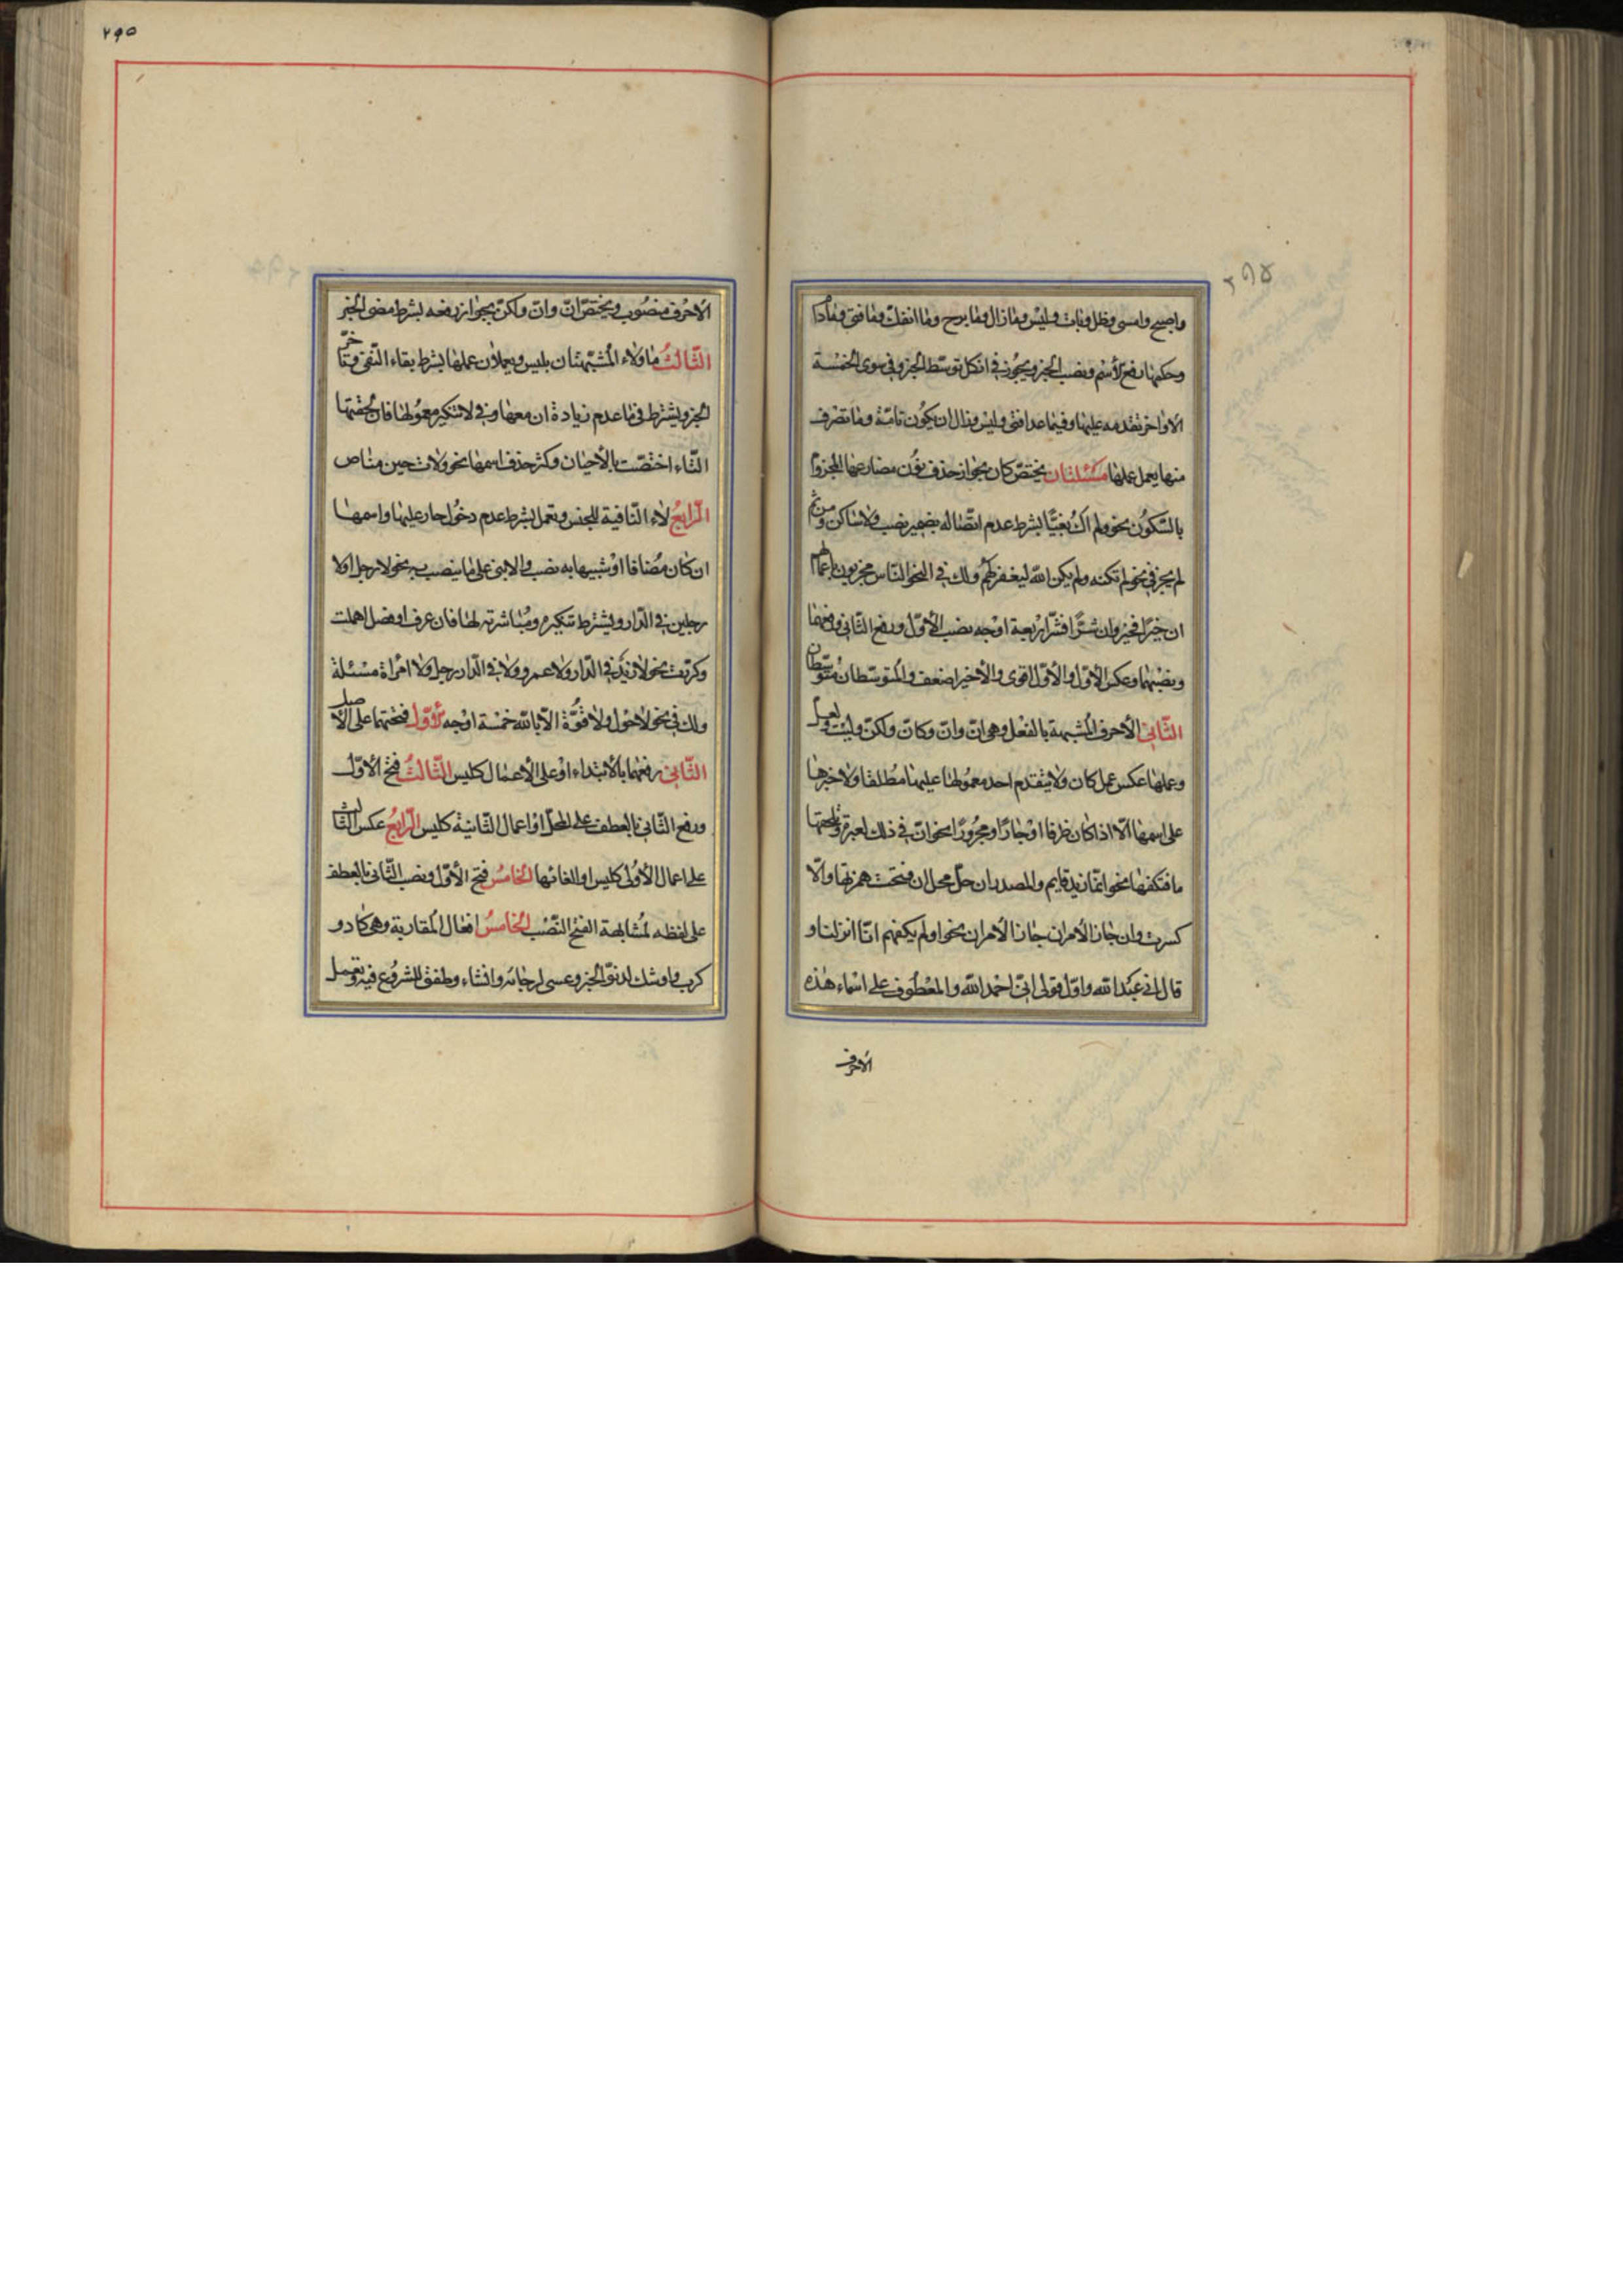 ٢٩٥
٢٩٥
واصبح وامسى وظل وبات وليس وما زال وما برح وما انفك وما فتئ وما دام
وحكمها رفع الاسم ونصب الخبر ويجوز في الكل توسط الخبر وفي سوى الخمسة
الاواخر تقدمه عليها وفيما عدا فتئ وليس وزال ان يكون تامة وما تصرف
منها يعمل عملها مسئلتان يختص كان بجواز حذف نون مضارعها المجزوم
بالسكون نحو ولم اك بغيا بشرط عدم اتصاله بضمير نصب ولا ساكن ومن ثم
لم يجز في نحو لم تكنه ولم يكن الله ليغفر لهم ولك في نحو الناس مجزيون باعمالهم
ان خيرا فخير وان شرا فشر اربعة اوجه نصب الاول ورفع الثاني ورفعهما
ونصبهما وعكس الاول والاول اقوى والاخير اضعف والمتوسطان متوسطان
الثاني الاحرف المشبهة بالفعل وهي ان وان وكان ولكن وليت ولعل
وعملها عكس عمل كان ولا يتقدم احد معموليها عليها مطلقا ولا خبرها
على اسمها الا اذا كان ظرفا او جارا ومجرورا نحو ان في ذلك لعبرة وتلحقها
ما فتكفها نحو انما زيد قايم والمصدر ان حل محل ان فتحت همزتها والا
كسرت وان جاز الامران جاز الامران نحو اولم يكفهم انا انزلنا و
قال اني عبد الله واول قولي اني احمد الله والمعطوف على اسماء هذه
الاحرف
الاحرف منصوب ويختص ان وان ولكن بجواز رفعه بشرط مضي الخبر
الثالث ما ولاء المشبهتان بليس ويعملان عملها بشرط بقاء النفي وتاخر
الخبر ويشترط في ما عدم زيادة ان معها وفي لا تنكير معموليها فان لحقتها
التاء اختصت بالاحيان وكثر حذف اسمها نحو ولات حين مناص
الرابع لاء النافية للجنس وتعمل بشرط عدم دخول جار عليها واسمها
ان كان مضافا او شبيها به نصب والا بني على ما ينصب به نحو لا رجل ولا
رجلين في الدار ويشترط تنكيره ومباشرته لها فان عرف او فصل اهملت
وكررت نحو لا زيد في الدار ولا عمرو ولا في الدار رجل ولا امرأة مسئلة
ولك في نحو لا حول ولا قوة الا بالله خمسة اوجه الاول فتحهما على الاصل
الثاني رفعهما بالابتداء او على الاعمال كليس الثالث فتح الاول
ورفع الثاني بالعطف على المحل او اعمال الثانية كليس الرابع عكس الثالث
على اعمال الاولى كليس او الغائها الخامس فتح الاول ونصب الثاني بالعطف
على لفظه لمشابهة الفتح النصب الخامس افعال المقاربة وهي كاد و
كرب واوشك لدنو الخبر وعسى لرجائه وانشاء وطفق للشروع فيه وتعمل